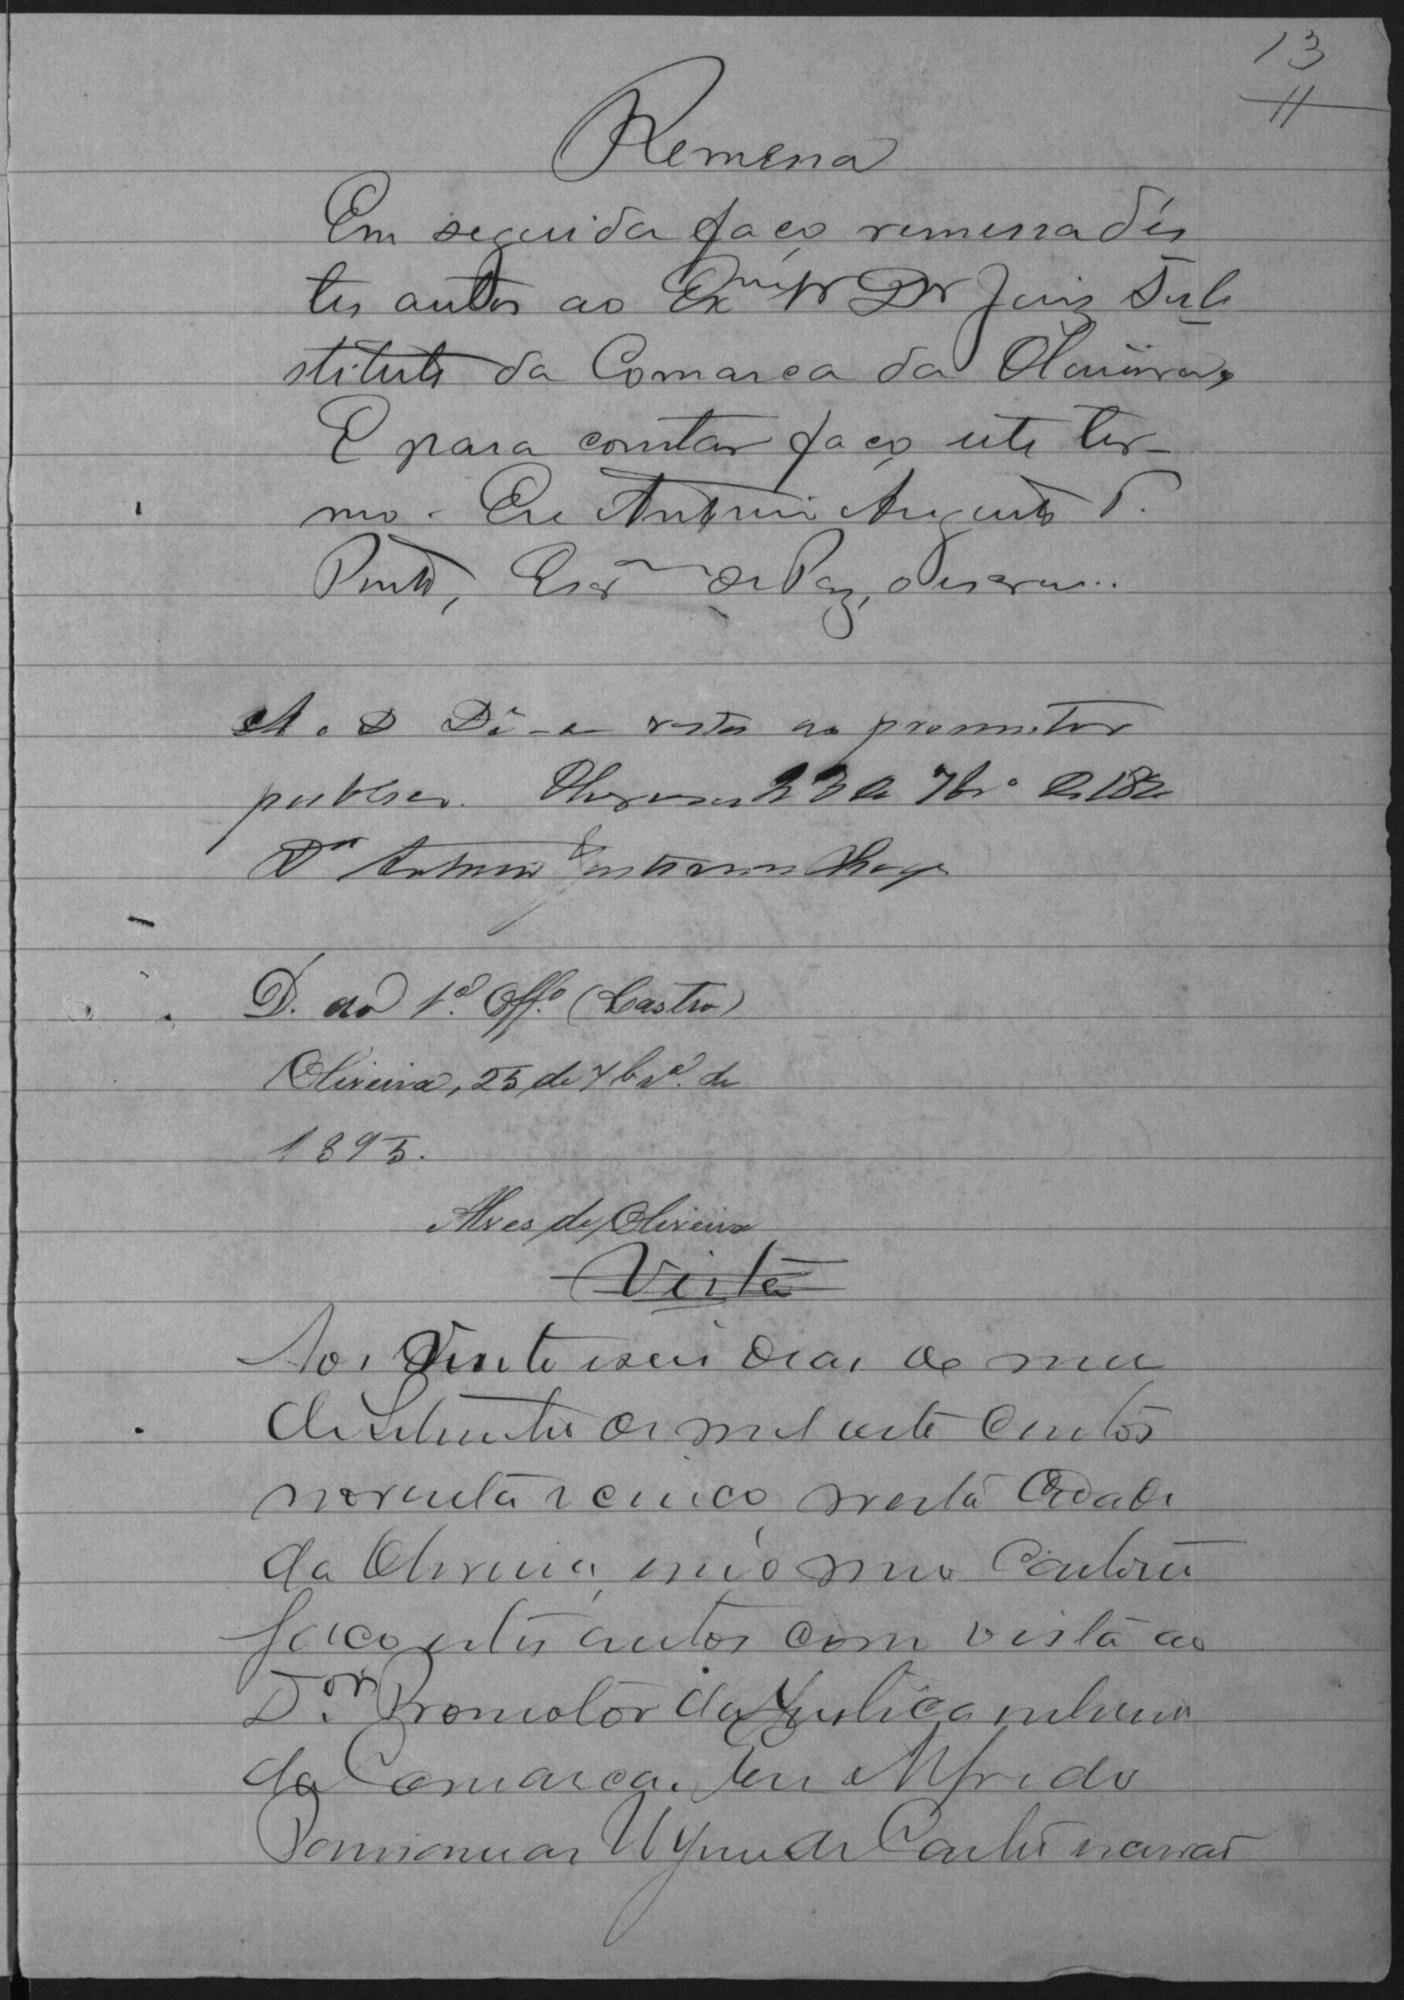 13
11
Remessa
Em seguida faço remessa dés
tes autos ao Exmº Sr Dr Juiz Sub
stituto da Comarca da Oliveira,
E para constar faço este ter-
mo. Eu Antonio Augusto P.
Pinto, Escrm de Paz, o escrevi.
A. e D Dê-se vista ao promotor
publico. Oliveira 23 de 7bro de 189
Dr Antonio Chagas
D. ao 1º. Offº (Castro)
Oliveira, 25 de 7brº. de
1895.
Alves de Oliveira
Vista
Aos Vinte eseis dias do mes
de Setembro de mil oito Centos
noventa e cinco nesta Cidade
da Oliveira, em o meu Cartorio
faço estes autos com vista ao
Dor. Promotor da Justiça
da Comarca. Eu Alfredo
de